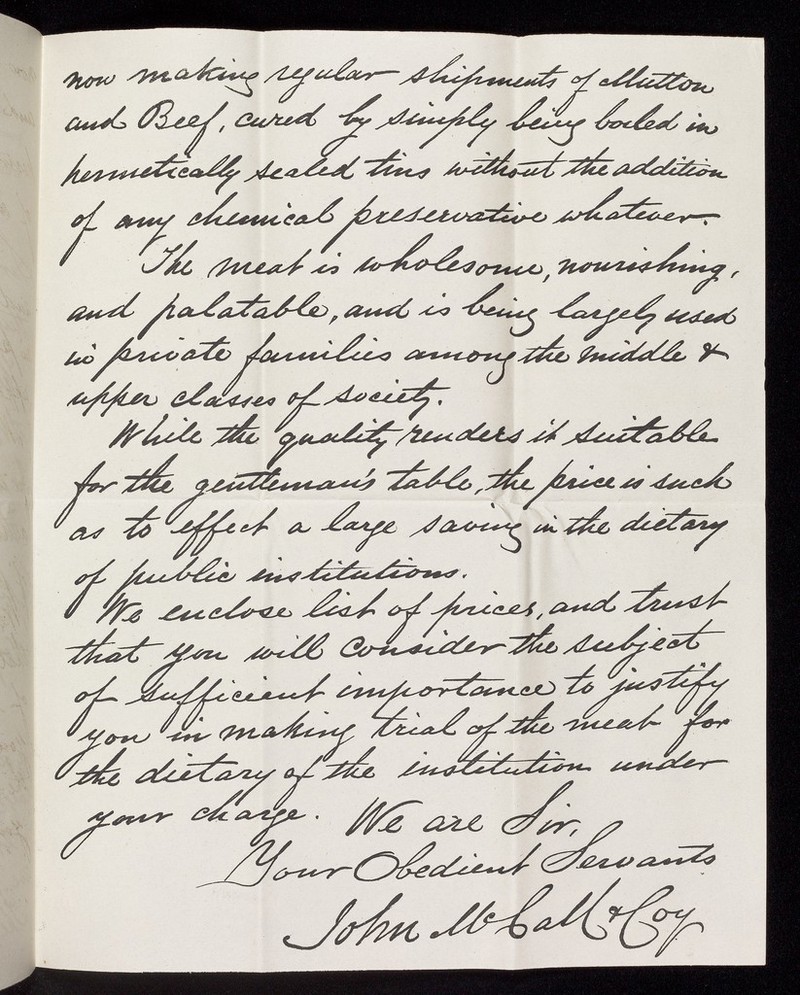 now making regular shipments of Mutton
and Beef, cured by simply being boiled in
hermetically sealed tins without the addition
of any chemical preservative whatever.
The meat is wholesome, nourishing,
and palatable, and is being largely used
in private families among the middle &
upper classes of society.
While the quality renders it suitable
for the gentleman's table, the price is such
as to effect a large saving in the dietary
of public institutions.
We enclose list of prices, and trust
that you will consider the subject
of sufficient importance to justify
you in making trial of the meat for
the dietary of the institution under
your charge. We are Sir,
Your Obedient Servants
John McCall & Coy